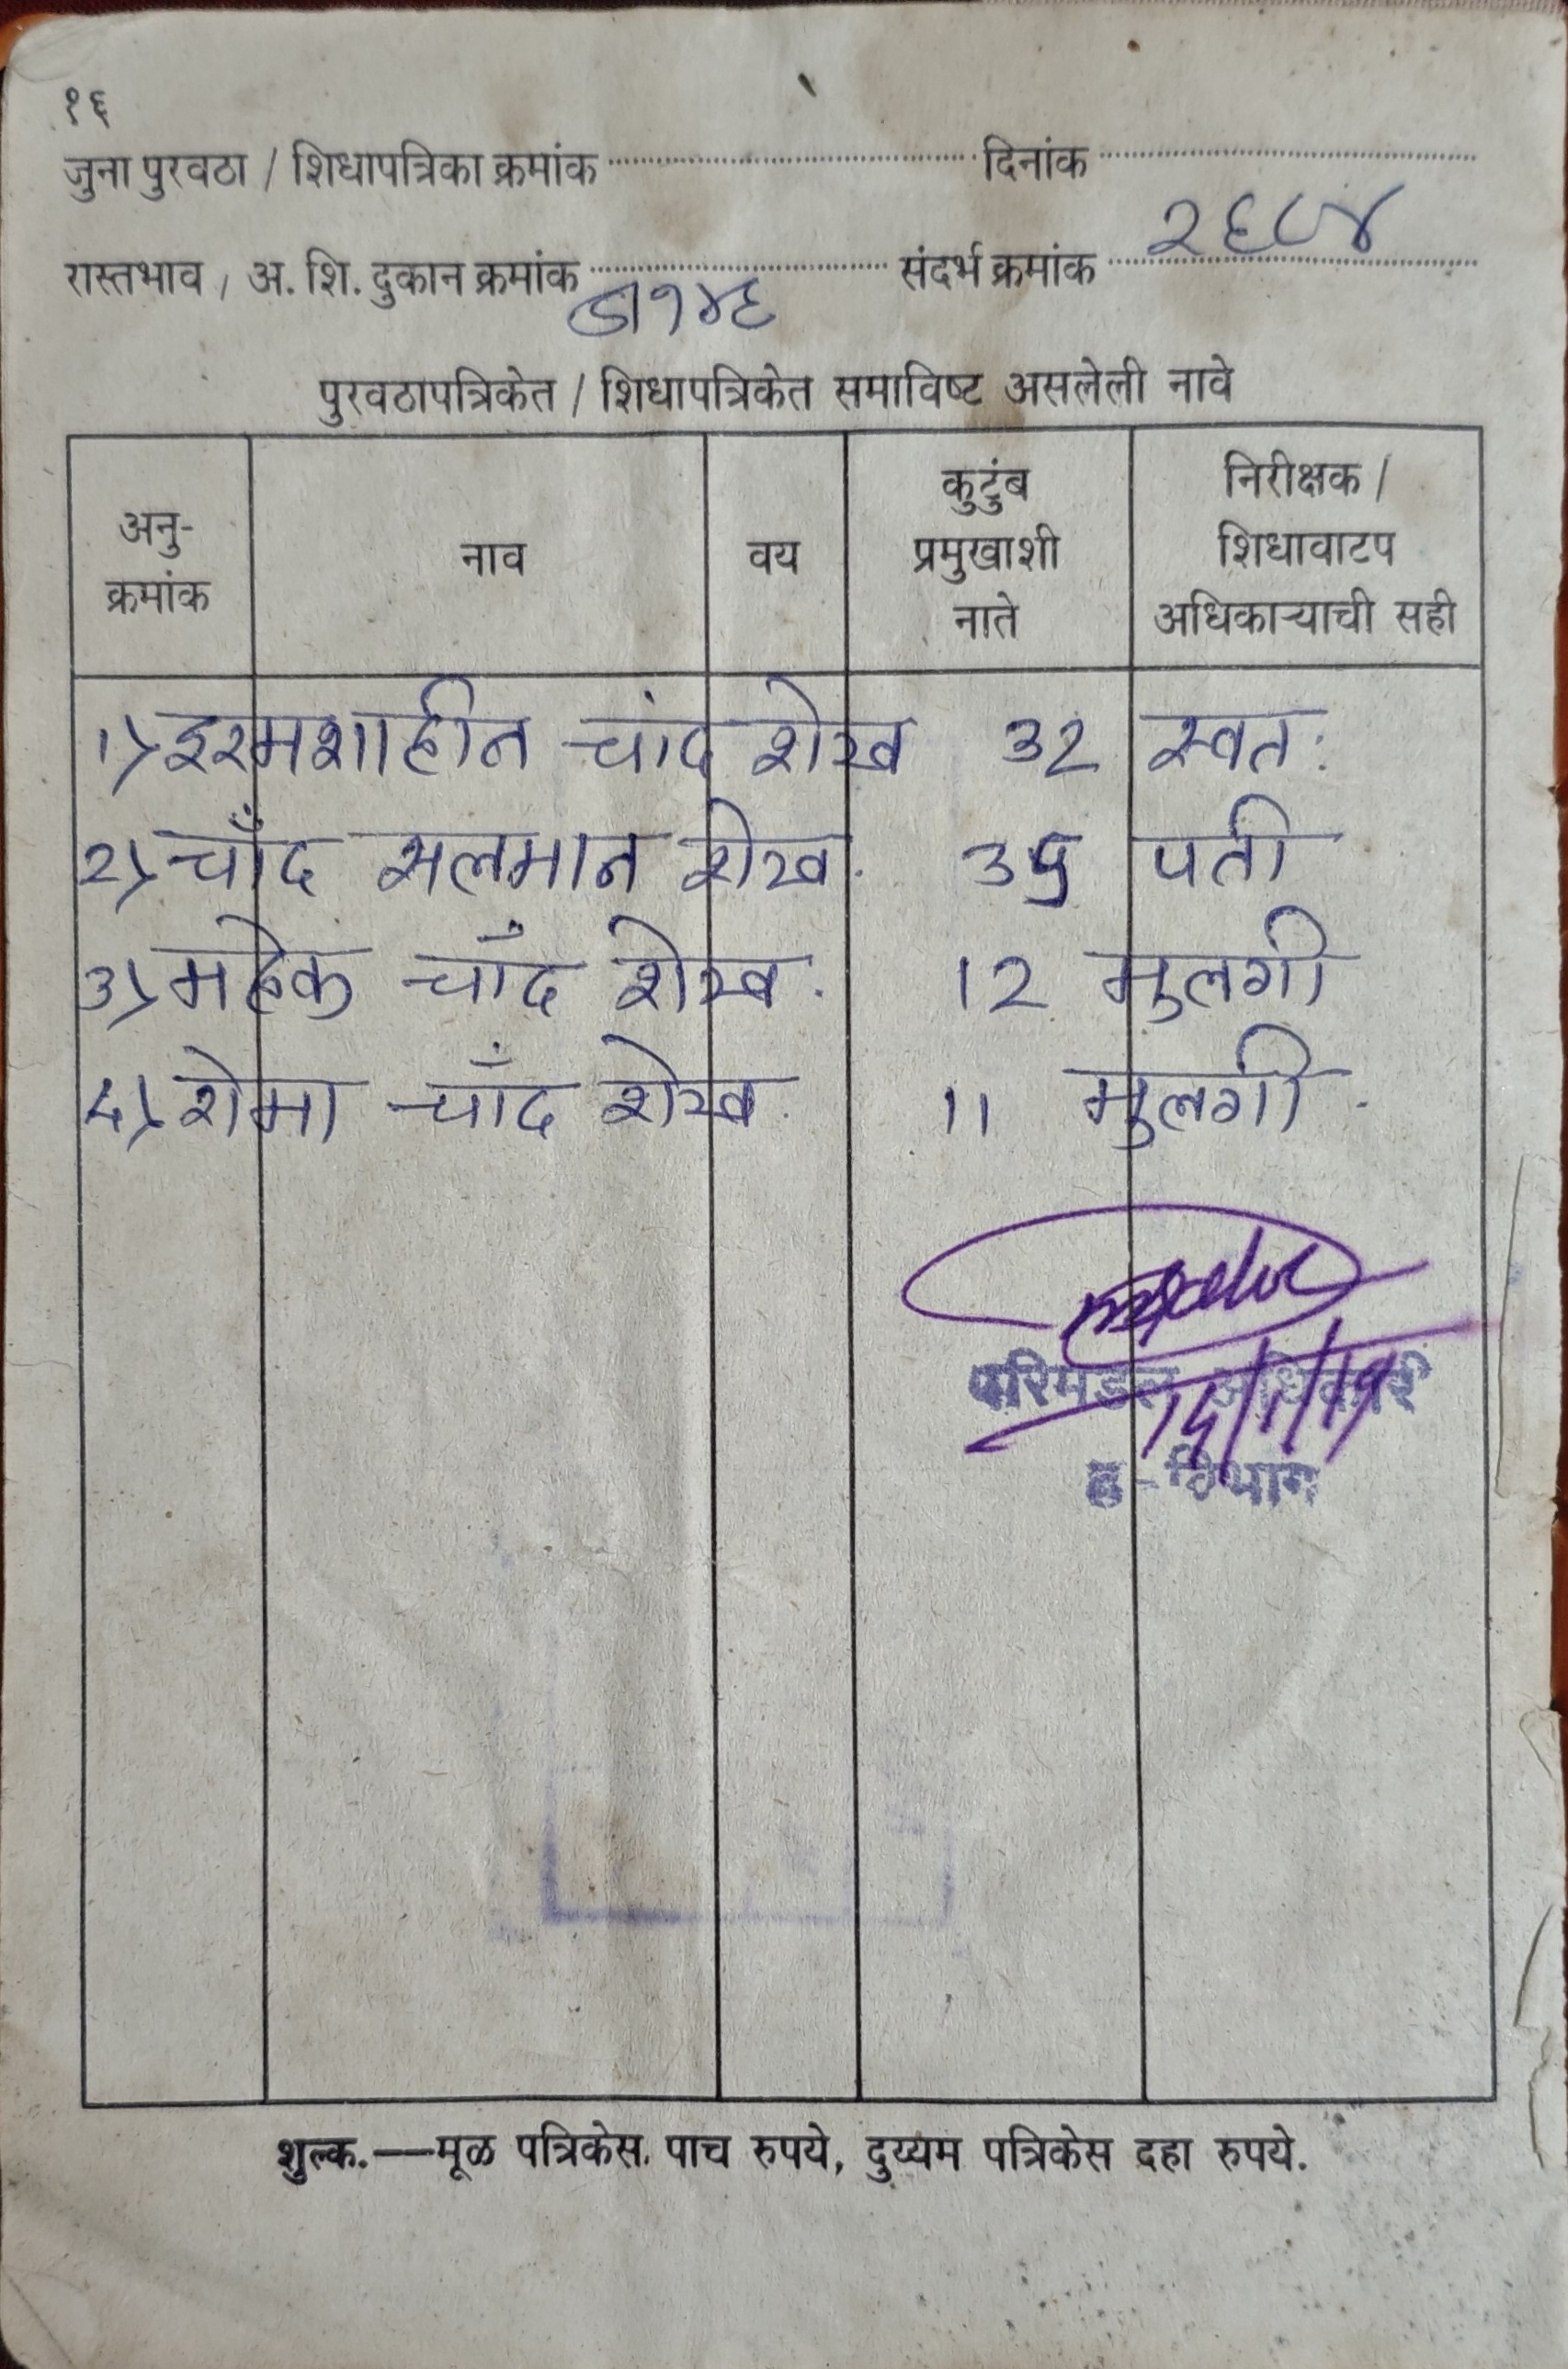 १६
जुना पुरवठा / शिधापत्रिका क्रमांक दिनांक
रास्तभाव / अ. शि. दुकान क्रमांक डा१४६ संदर्भ क्रमांक २६८४
पुरवठापत्रिकेत / शिधापत्रिकेत समाविष्ट असलेली नावे
अनु-
क्रमांक
नाव
वय
कुटुंब
प्रमुखाशी
नाते
निरीक्षक /
शिधावाटप
अधिकाऱ्याची सही
1) इरमशाहीन चांद शेख 32 स्वतः
2) चाँद सलमान शेख. 35 पती
3) महेक चाँद शेख. 12 मुलगी
4) शेमा चाँद शेख. 11 मुलगी.
परिमंडळ अधिकारी
ह-विभाग
शुल्क.—मूळ पत्रिकेस पाच रुपये, दुय्यम पत्रिकेस दहा रुपये.